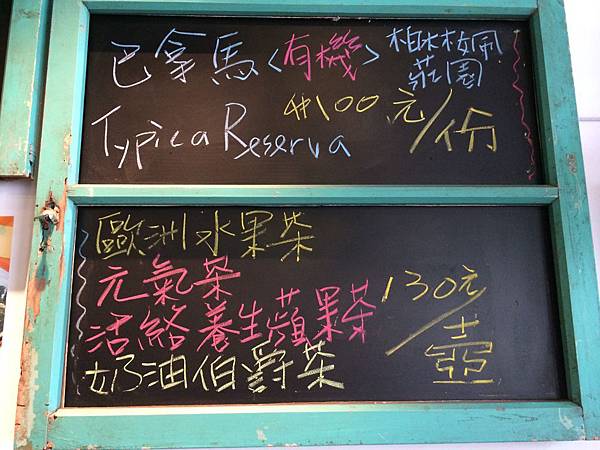 巴拿馬<有機>柏林娴
莊園
Typica Reserva
$100元/份
歐洲水果茶
元氣茶
活絡養生蘋果茶
奶油伯爵茶
130元/壺